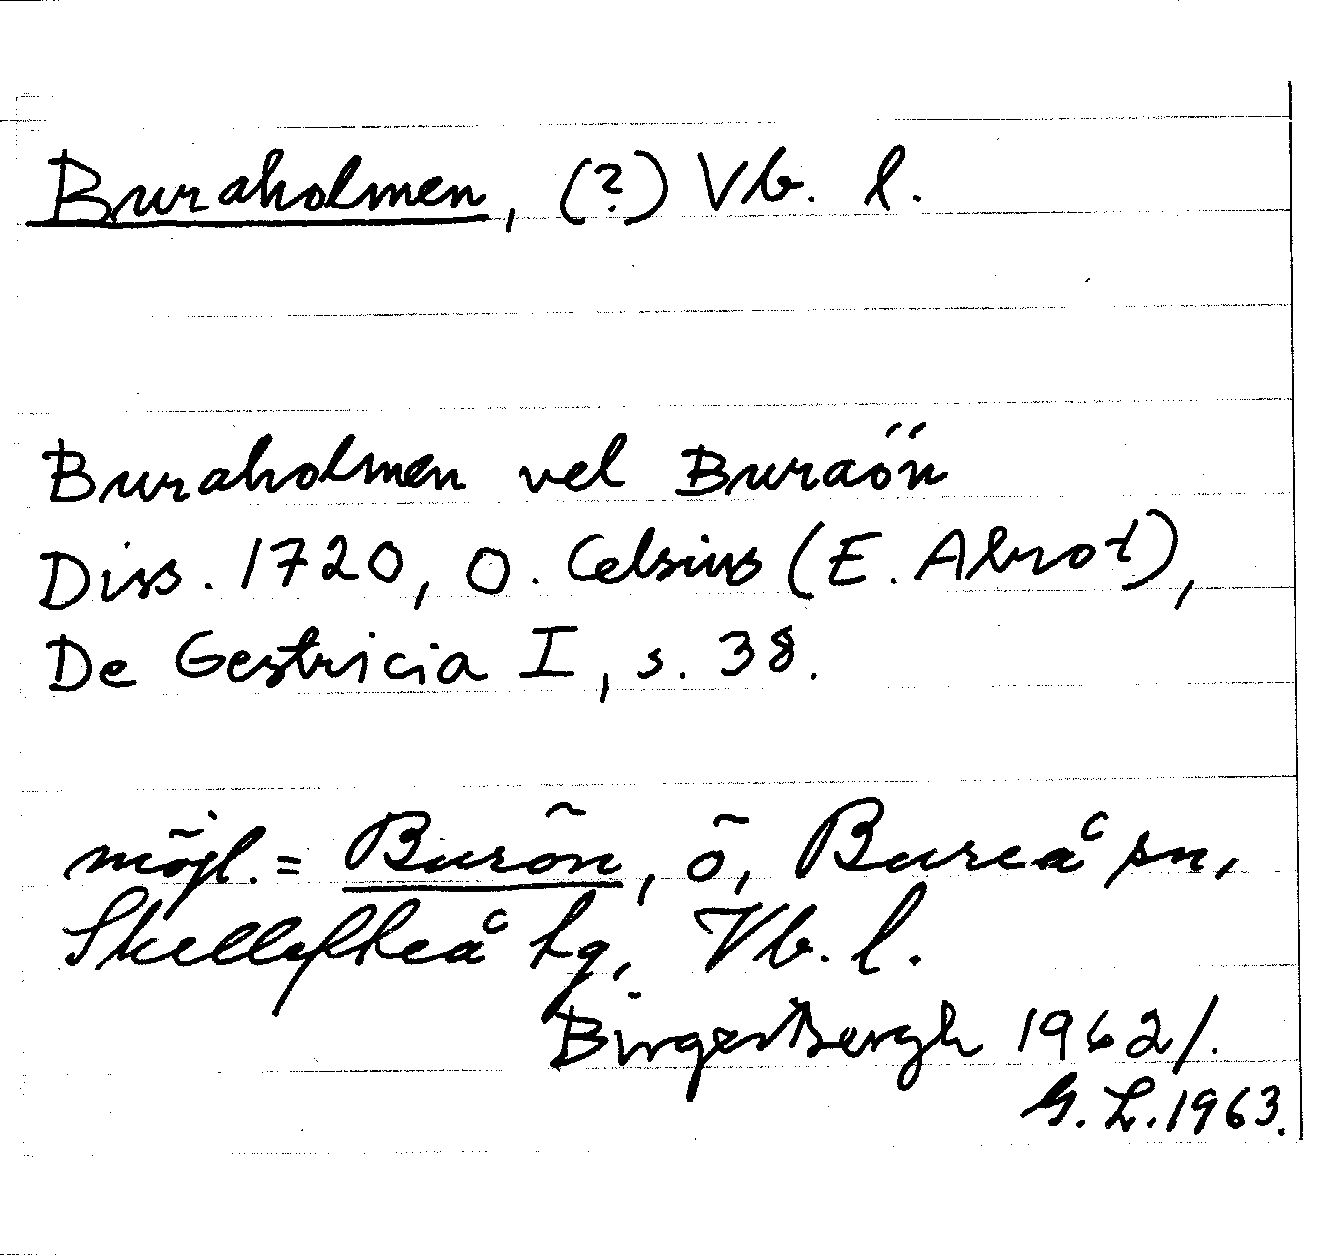 Buraholmen, (?) Vb. l.
Buraholmen vel Buraön
Diss. 1720, O. Celsius (E. Alrot),
De Gestricia I, s. 38.
mögl. = Burön, ö, Bureå sn,
Skellefteå hg, Vb. l.
Birger Bergh 1962/.
G. L. 1963.